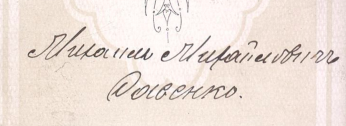 Михаилъ Михайловичъ
Савенко.